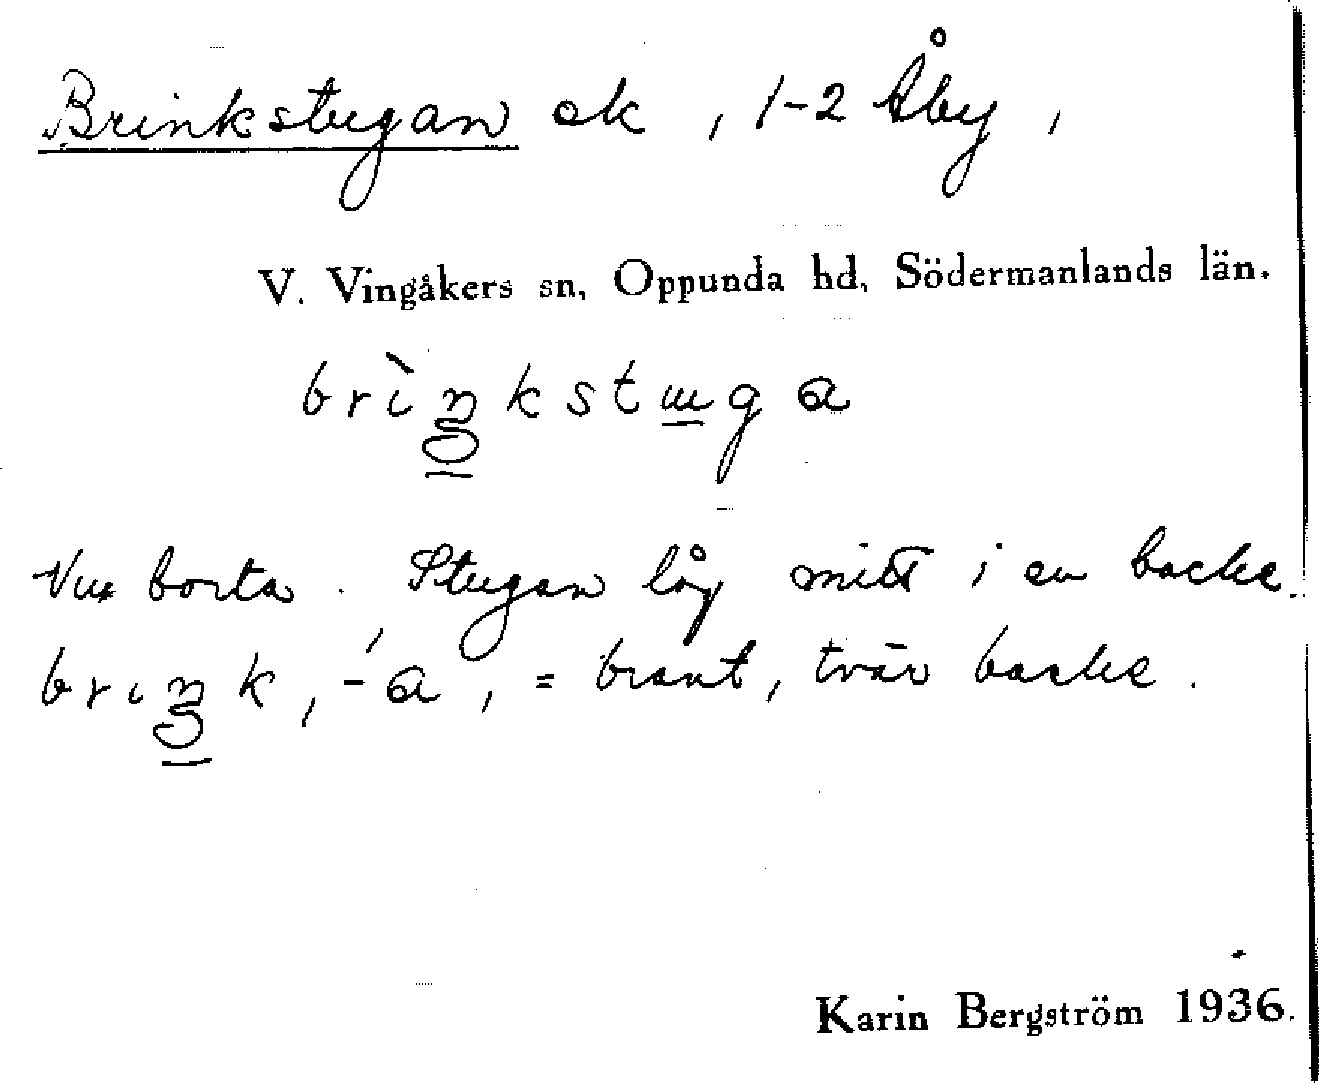 Brinkstugan ok, 1-2 Åby,
V. Vingåkers sn, Oppunda hd, Södermanlands län.
brìŋkstɯga
Nu borta. Stugan låg mitt i en backe.
brıŋk, -́a, = brant, tvär backe.
Karin Bergström 1936.